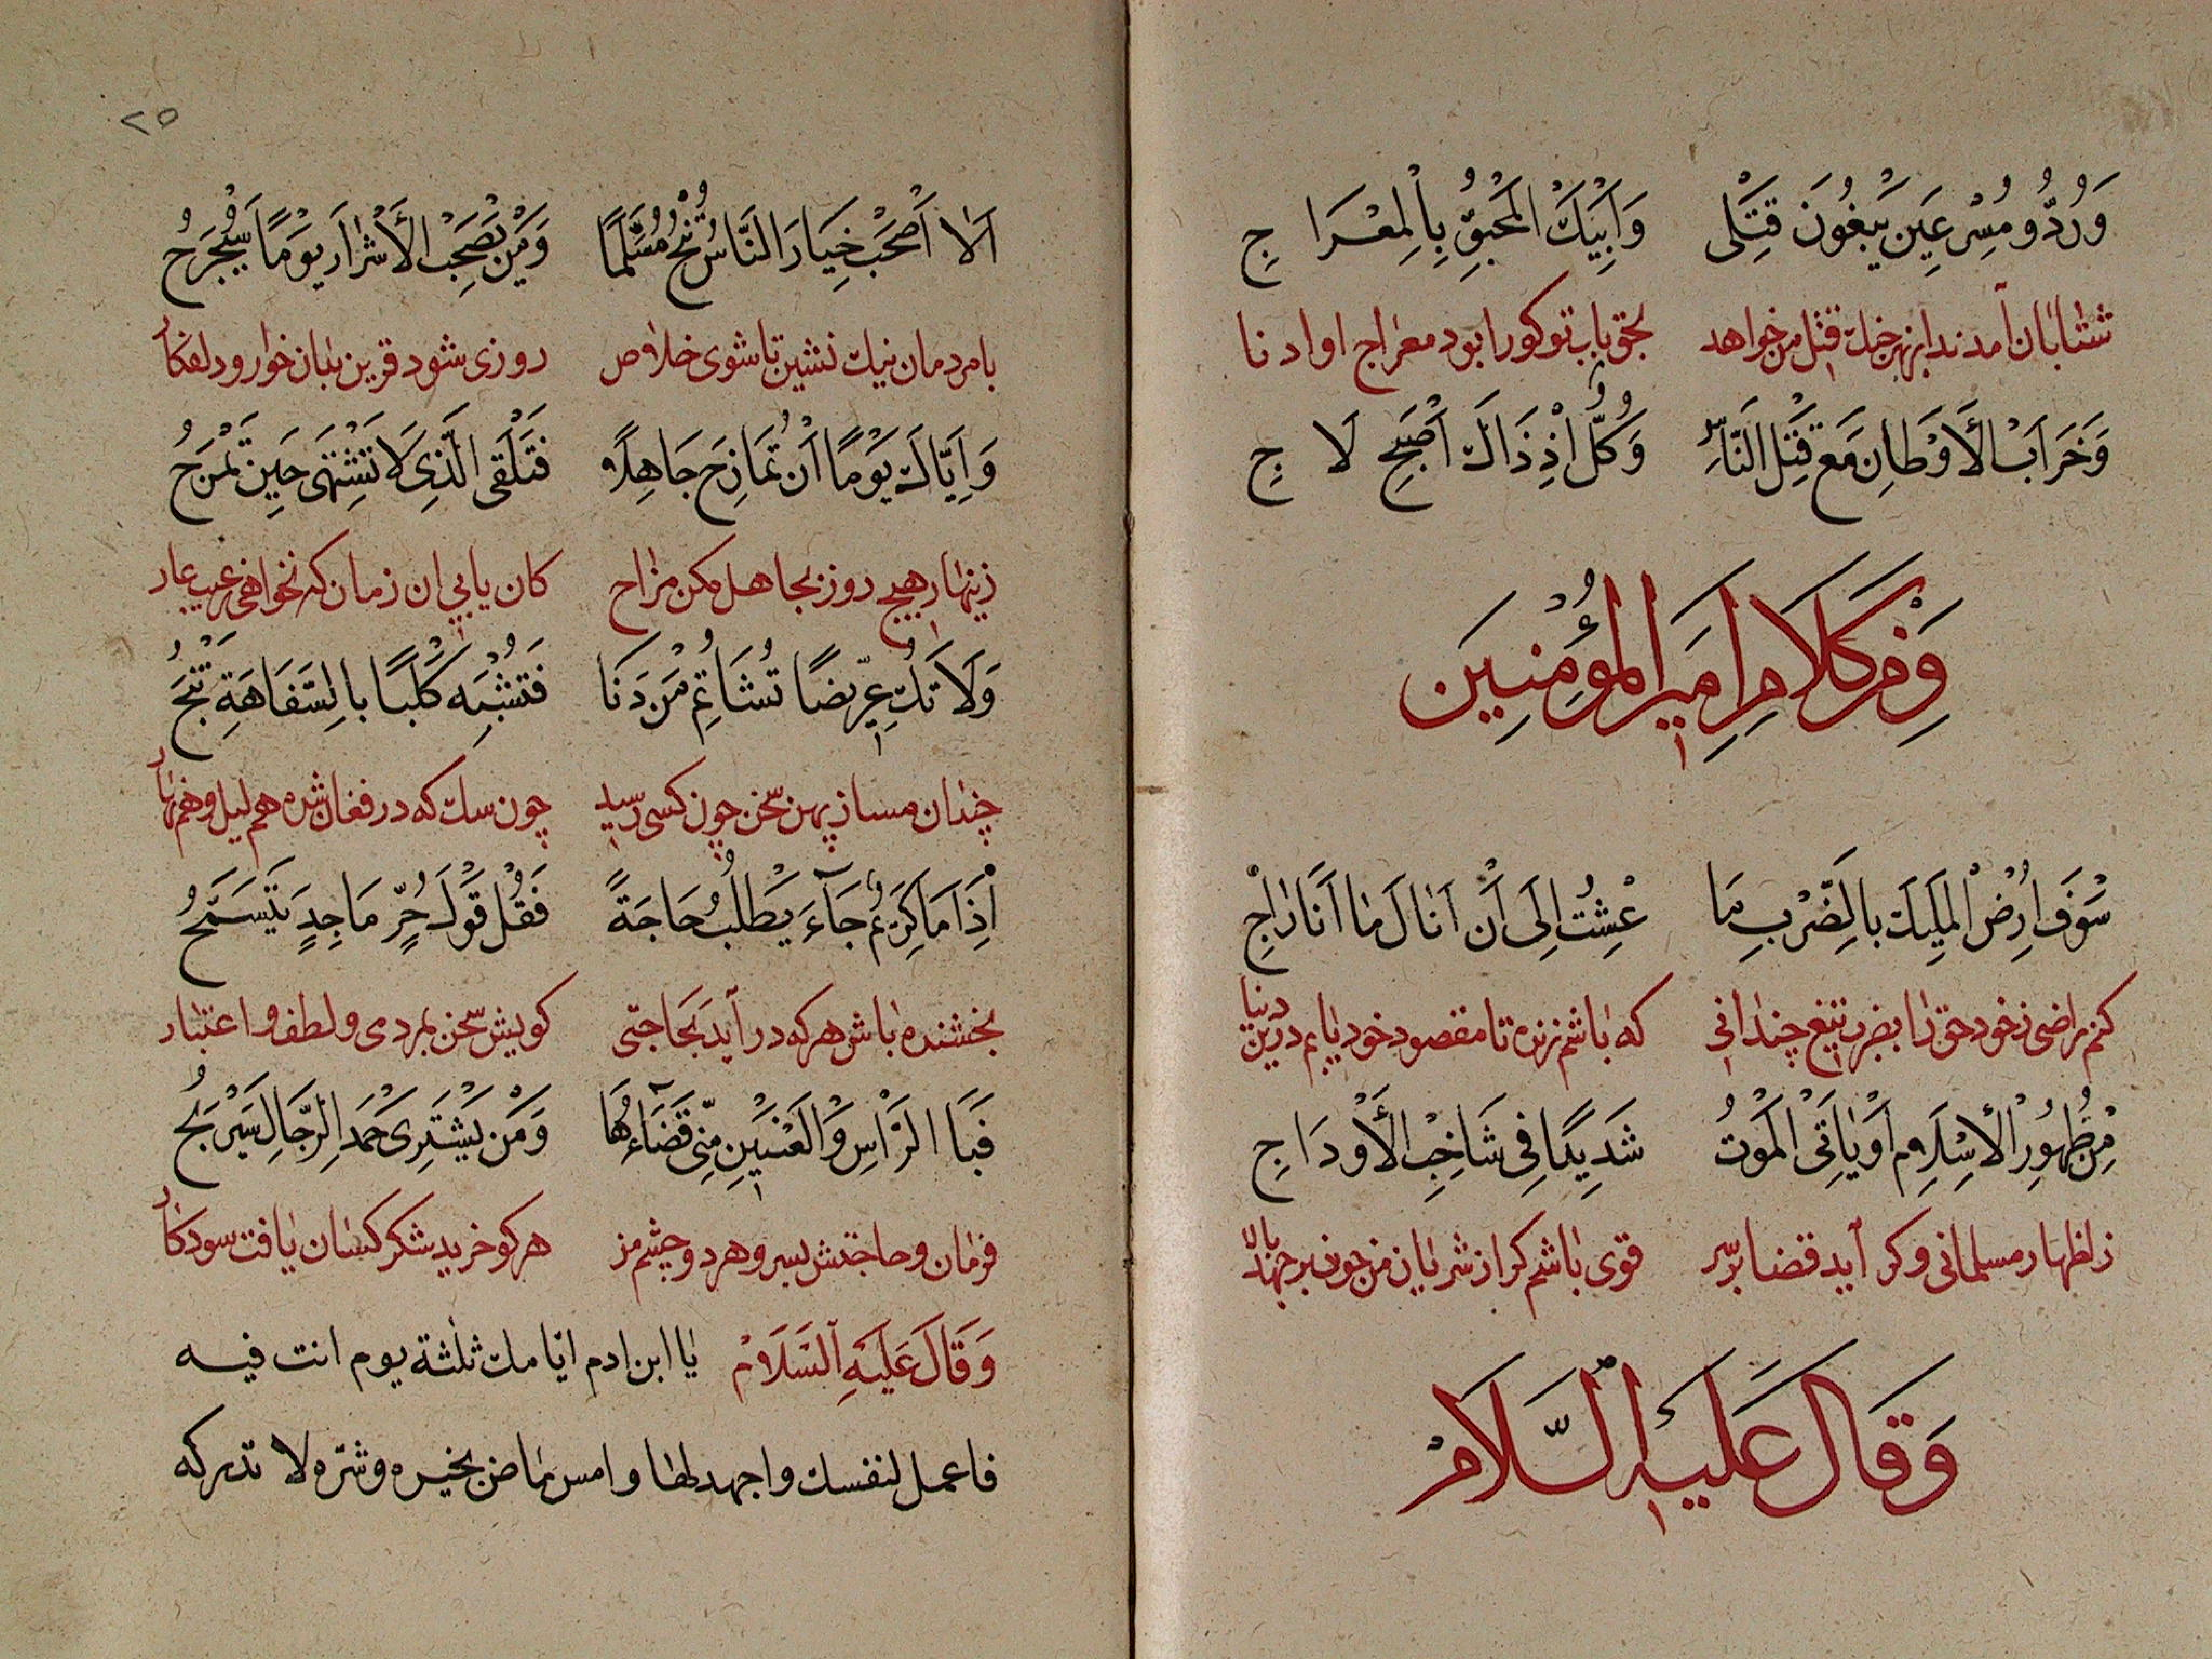 وَرُدُّو مُسْرِعِين يَبْغُونَ قَتْلى وَاَبِيْكَ الْمُحِبِّقِ بِالْمِعْرَاجِ
شتابان آمدند از بهر جنك قتل من خواهد بحق باب تو كورا بود معراج او ادنا
وَخَرَابَ الْأَوْطَانِ مَعَ قَتْلِ النَّاسِ وَكُلٌّ اِذْ ذَاكَ اَصْبَحَ لَاجِ
وَمِنْ كَلَامِ اَمِيرِ الْمُؤْمِنِينَ
سَوْفَ اُرْضِ الْمَلِيكَ بِالضَّرْبِ مَا عِشْتُ اِلَى اَنْ اَنَالَ مَا اَنَا رَاجِ
كنم راضى ز خود حق را بضرب تيغ چندانى كه باشم زنده تا مقصود خود يابم درين دنيا
مِنْ ظُهُورِ الْاِسْلَامِ اَوْ يَاتِىَ الْمَوْتُ شَدِيدًا فِى شَاخِبِ الْأَوْدَاجِ
ز اظهار مسلمانى وكر آيد قضا بر سر قوى باشم كر از شريان من خون بر جهد بالا
وَقَالَ عَلَيْهِ السَّلَامْ
٢٥
اَلَا اَصْحَبْ خِيَارَ النَّاسِ تَنْجُ مُسَلَّمًا وَمَنْ يَصْحَبِ الْأَشْرَارَ يَوْمًا سَيُجْرَحُ
با مردمان نيك نشين تا شوى خلاص روزى شود قرين بدان خوار و دلفكار
وَاِيَّاكَ يَوْمًا اَنْ تُمَازِحَ جَاهِلًا فَتَلْقَى الَّذِى لَا تَشْتَهِى حِينَ تَمْزَحُ
زينهار هيچ روز بجاهل مكن مزاح كان يابى ان زمان كه نخواهى ز عيب عار
وَلَا تَكُ عِرِّيضًا تُشَاتِمُ مَنْ دَنَا فَتُشْبِهَ كَلْبًا بِالسَّفَاهَةِ تَنْبَحُ
چندان مساز پهن سخن چون كسى رسيد چون سك كه در فغان شده هم ليل و هم نهار
اِذَا مَا كَرِيمٌ جَآءَ يَطْلُبُ حَاجَةً فَقُلْ قَوْلَ حُرٍّ مَاجِدٍ يَتَسَمَّحُ
بخشنده باش هر كه در آيد بحاجتى كويش سخن بمردمى و لطف و اعتبار
فَبَا الرَّاْسِ وَالْعَيْنَيْنِ مِنِّى قَضَآءُهَا وَمَنْ يَشْتَرِى حَمْدَ الرِّجَالِ سَيَرْبَحُ
فرمان و حاجتش بسر و هر دو چشم من هر كو خريد شكر كسان يافت سود كار
وَقَالَ عَلَيْهِ السَّلَامْ يا ابن ادم ايّامك ثلثة يوم انت فيه
فاعمل لنفسك واجهد لها وامس ماض بخيره وشرّه لا تدركه